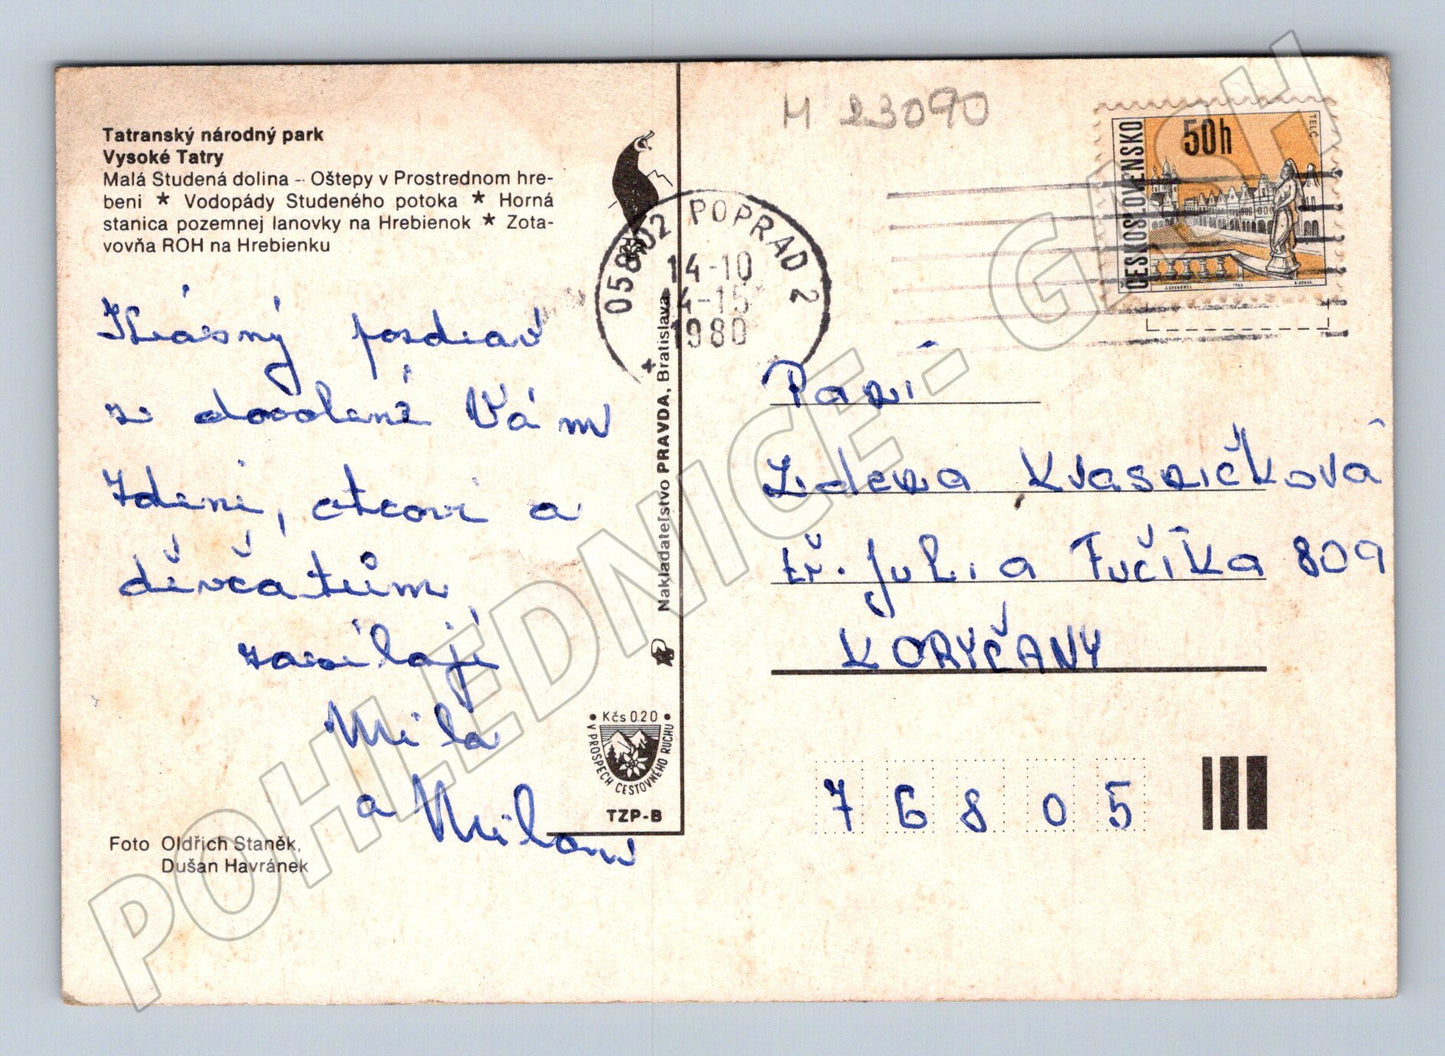 Tatranský národný park
Vysoké Tatry
Malá Studená dolina – Oštepy v Prostrednom hre-
beni * Vodopády Studeného potoka * Horná
stanica pozemnej lanovky na Hrebienok * Zota-
vovňa ROH na Hrebienku
Krásný pozdrav
z dovolené Vám
Zdeni, otcovi a
děvčatům
zasílají
Mila
a Miloni
Foto Oldřich Staněk,
Dušan Havránek
058 02 POPRAD 2
14-10
4-15
1980
Nakladateľstvo PRAVDA, Bratislava
• Kčs 0.20 •
V PROSPECH CESTOVNÉHO RUCHU
TZP-B
M 23090
ČESKOSLOVENSKO
50h
TELČ
Paní
Zdena Kvasničková
tř. Julia Fučíka 809
KORYČANY
76805
POHLEDNICE - GASH